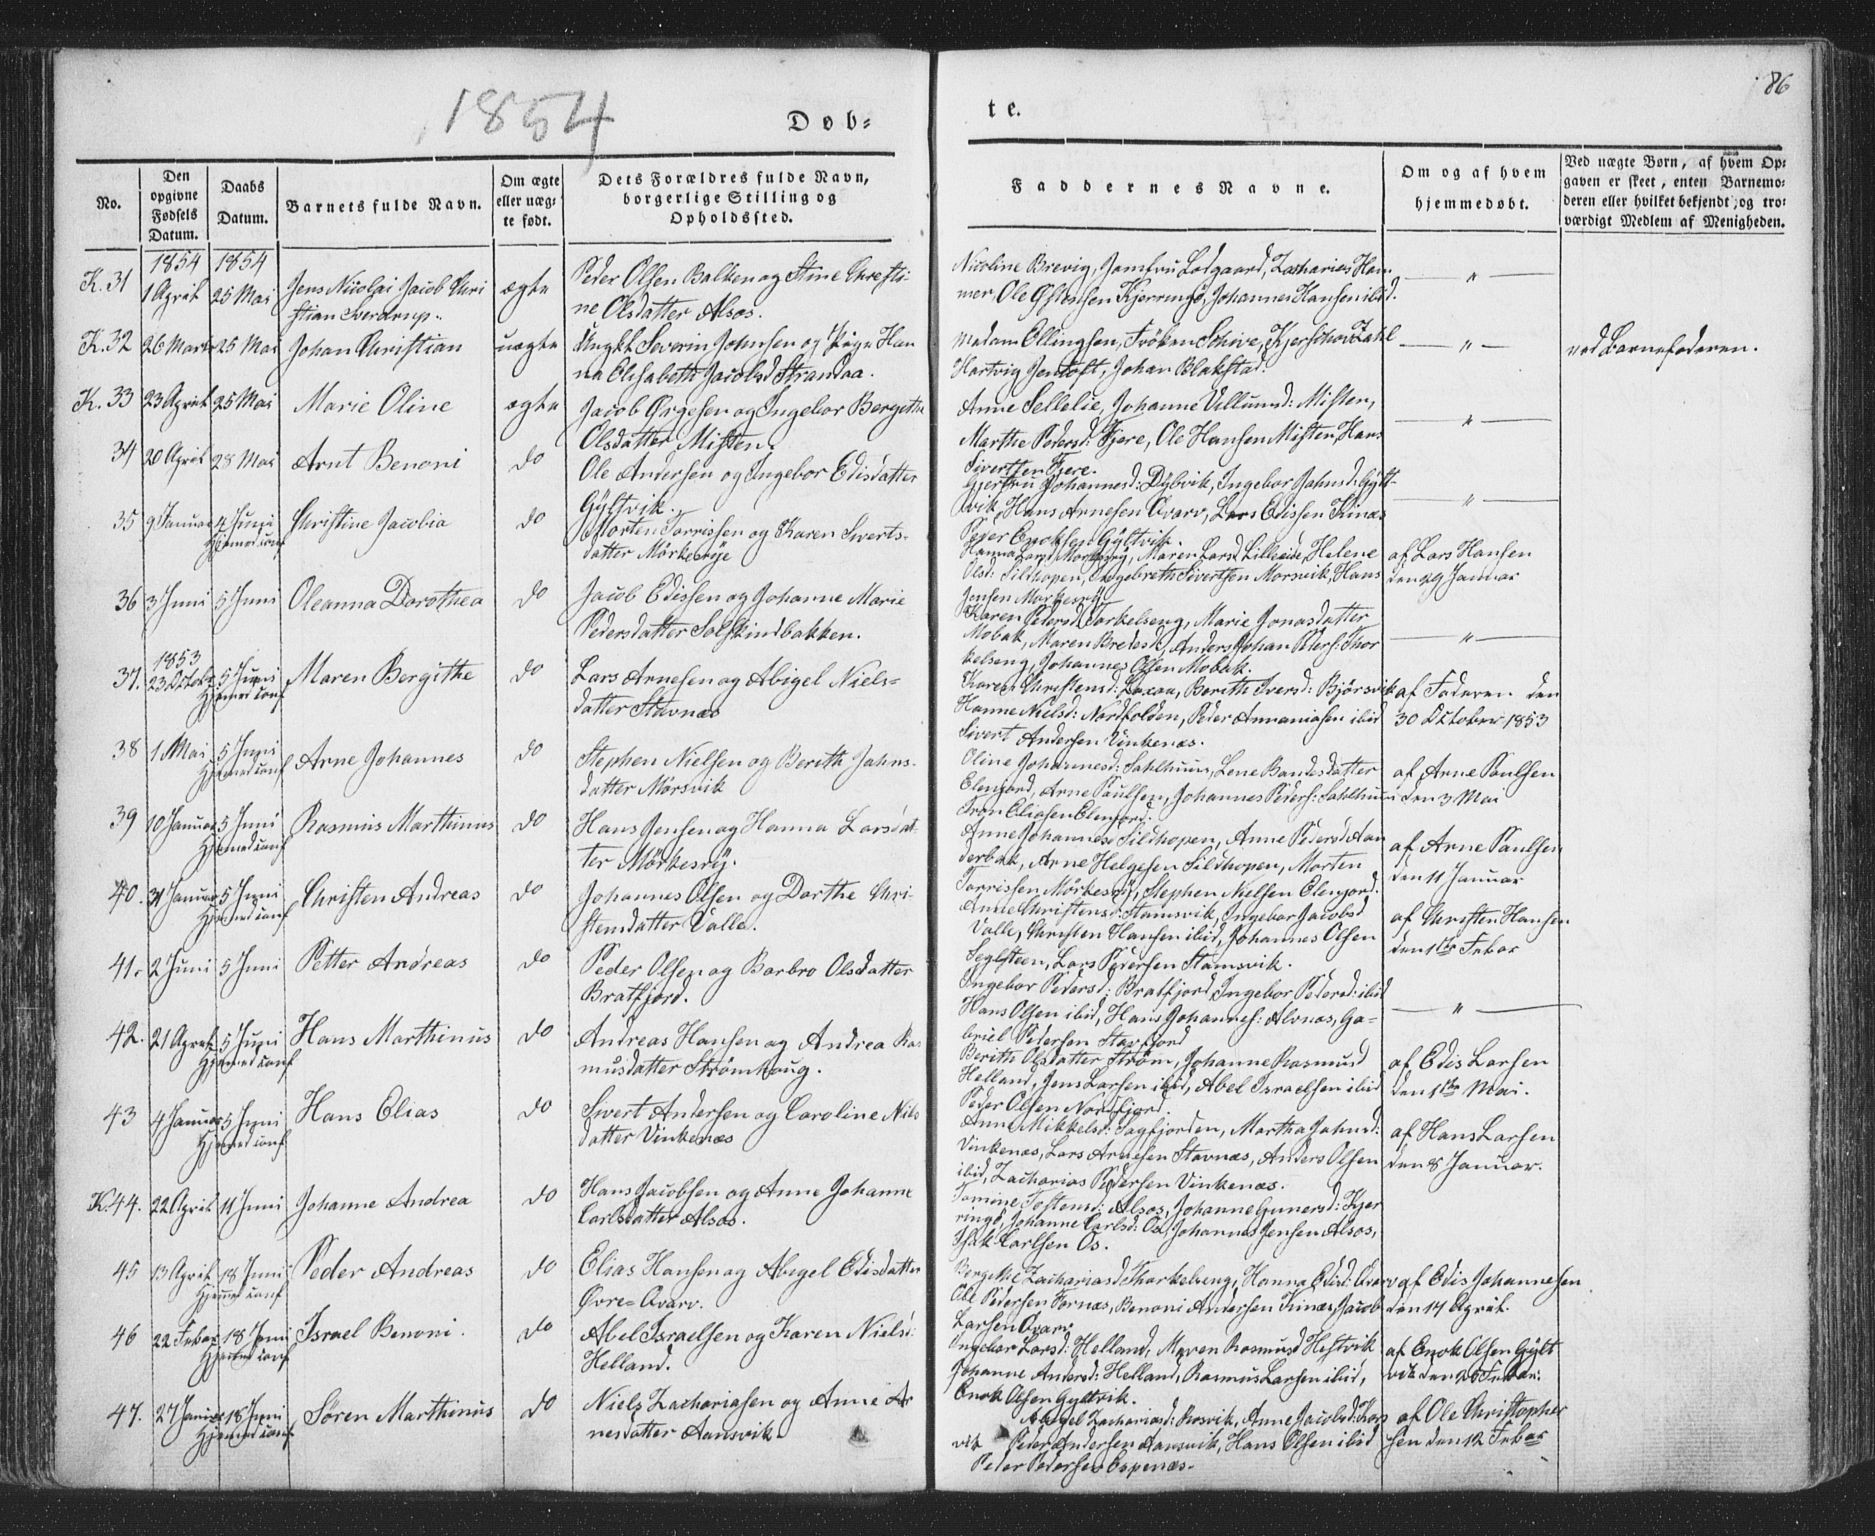 86
1854
Døb=
te.
No.
Den opgivne Fødsels Datum.
Daabs Datum.
Barnets fulde Navn.
Om ægte eller uæg= te født.
Dets Forældres fulde Navn, borgerlige Stilling og Opholdssted.
Faddernes Navne.
Om og af hvem hjemmedøbt.
Ved uægte Børn, af hvem Op= gaven er skeet, enten Barnemo= deren eller hvilket bekjendt, og tro= værdigt Medlem af Menigheden.
1854 1854
K. 31 1 April 25 Mai Jens Nicolai Jacob Chri
stian Sverdrup.
ægte
Peder Olsen Balken og Stine Christi
ne Olsdatter Alsos.
Nicoline Brevig, Jomfru Lodgaard, Zacharias Ham
mer, Ole Kjerringø, Johannes Hansen ibid.
— " —
K. 32 26 Marts 25 Mai Johan Christian
uægte
Ungkl Severin Johnsen og Pige Han
na Elisabeth Jacobsd Strandaa.
Madam Ellingsen, Frøken Schive, Kjerschov Zahl
Hartvig Jentoft, Johan Blakstad.
— " —
ved Barnefaderen.
K. 33 23 April 25 Mai Marie Oline
ægte
Jacob Ørgesen og Ingebor Bergithe
Olsdatter Misten.
Anne Sellelie, Johanne Villumsd: Misten,
Marthe Pedersd: Fjere, Ole Hansen Misten, Hans
Sivertsen Fjere.
— " —
34 20 April 28 Mai Arnt Benoni
do
Ole Andersen og Ingebor Edisdatter
Gyltvik.
Gjertru Johannesd: Dybvik, Ingebor Johnsd: Gylt-
vik, Hans Arnesen Qvarv, Lars Edissen Kinæs
Peder Enoksen Gyltvik.
— " —
35 9 Januar 4 Juni Christine Jacobia
Hjemmed conf
do
Morten Torrissen og Karen Siverts-
datter Mørkesvije
Hanna Larsd Mørkesvij, Maren Larsd Lilleeide, Helene
Olsd: Sildhopen, Ingebreth Sivertsen Morsvik, Hans
Jensen Mørkesvij
af Lars Hansen
den 29 Januar
36 3 Juni 5 Juni Oleanna Dorothea
do
Jacob Edissen og Johanne Marie
Pedersdatter Solskindbakken.
Karen Pedersd Torkelseng, Marie Jonasdatter
Mobak, Maren Bredesd, Anders Johan Peders: Thor
kelseng, Johannes Olsen Mobak.
— " —
1853
37. 23 Octobr 5 Juni Maren Bergithe
Hjemmed conf
do
Lars Arnesen og Abigel Niels=
datter Stavnæs
Karen Christensd: Laxaa, Berith Iversd: Bjørsvik
Hanne Nielsd: Nordfolden, Peder Annaniasen ibid
Sivert Andersen Vinkenæs.
af Faderen den
30 October 1853
38 1 Mai 5 Juni Arne Johannes
Hjemmed conf
do
Stephen Nielsen og Berith Johns-
datter Mørsvik
Oline Johannesd: Sahlhuus, Lene Bandesdatter
Elenjord, Arne Paulsen, Johannes Peders: Sahlhuus
Tron Eliasen Elenjord.
af Arne Paulsen
den 3 Mai
39 10 Januar 5 Juni Rasmus Marthinus
Hjemmed conf
do
Hans Jensen og Hanna Larsdat-
ter Mørkesvij.
Anne Johannesd Sildhopen, Anne Pedersd Aan
derbak, Arne Helgesen Sildhopen, Morten
Torrissen Mørkesvij, Stephen Nielsen Elenjord.
af Arne Paulsen
den 11 Januar
40. 31 Januar 5 Juni Christen Andreas
Hjemmed conf
do
Johannes Olsen og Dorthe Chri-
stensdatter Valle.
Anne Christensd: Stamsvik, Ingebor Jacobsd
Valle, Christen Hansen ibid, Johannes Olsen
Seglsteen, Lars Pedersen Stamsvik.
af Christen Hansen
den 1ste Febar
41. 2 Juni 5 Juni Petter Andreas
do
Peder Olsen og Barbro Olsdatter
Bratfjord.
Ingebor Pedersd: Bratfjord, Ingebor Pedersd: ibid
Hans Olsen ibid, Hans Johannes: Alvnæs, Ga-
briel Pedersen Stavfjord
— " —
42. 21 April 5 Juni Hans Marthinus
Hjemmed conf
do
Andreas Hansen og Andrea Ras
musdatter Strømhaug.
Berith Olsdatter Strøm, Johanne Rasmusd
Helland, Jens Larsen ibid, Abel Israelsen ibid
Peder Olsen Nordfjord.
af Edis Larsen
den 1ste Mai.
43 4 Januar 5 Juni Hans Elias
Hjemmed conf
do
Sivert Andersen og Caroline Nils
datter Vinkenæs
Anne Mikkelsd: Sagfjorden, Martha Johnsd:
Vinkenæs, Lars Arnesen Stavnæs, Anders Olsen
ibid, Zacharias Pedersen Vinkenæs.
af Hans Larsen
den 8 Januar.
K. 44. 22 April 11 Juni Johanne Andrea
do
Hans Jacobsen og Anne Johanne
Carlsdatter Alsos.
Tomine Tostensd: Alsos, Johanne Gunersd: Kjer
ringø, Johanne Carlsd: Os, Johannes Jensen Alsos,
Isak Carlsen Os.
45 13 April 18 Juni Peder Andreas
Hjemmed conf
do
Elias Hansen og Abigel Edisdatter
Øvre=Qvarv.
Bergithe Zachariasd Thorkelseng, Hanna Edisd: Qvarv
Ole Pedersen Fornæs, Benoni Andersen Kinæs, Jacob
Larsen Qvarv.
af Edis Johannesen
den 14 April.
46 22 Febar 18 Juni Israel Benoni.
Hjemmed conf
do
Abel Israelsen og Karen Nielsd:
Helland.
Ingebor Larsd: Helland, Maren Rasmusd Hestvik
Johanne Andersd: Helland, Rasmus Larsen ibid,
Enok Olsen Gyltvik.
af Enok Olsen Gylt
vik den 26 Febar.
47. 27 Januar 18 Juni Søren Marthinus
Hjemmed conf
do
Niels Zachariasen og Anne Ar
nesdatter Aansvik
Abigel Zachariasd: Rosvik, Anne Jacobsd: Kors
vik Peder Andersen Aansvik, Hans Olsen ibid
Peder Pedersen Espenæs.
af Ole Christopher
sen den 12 Febar